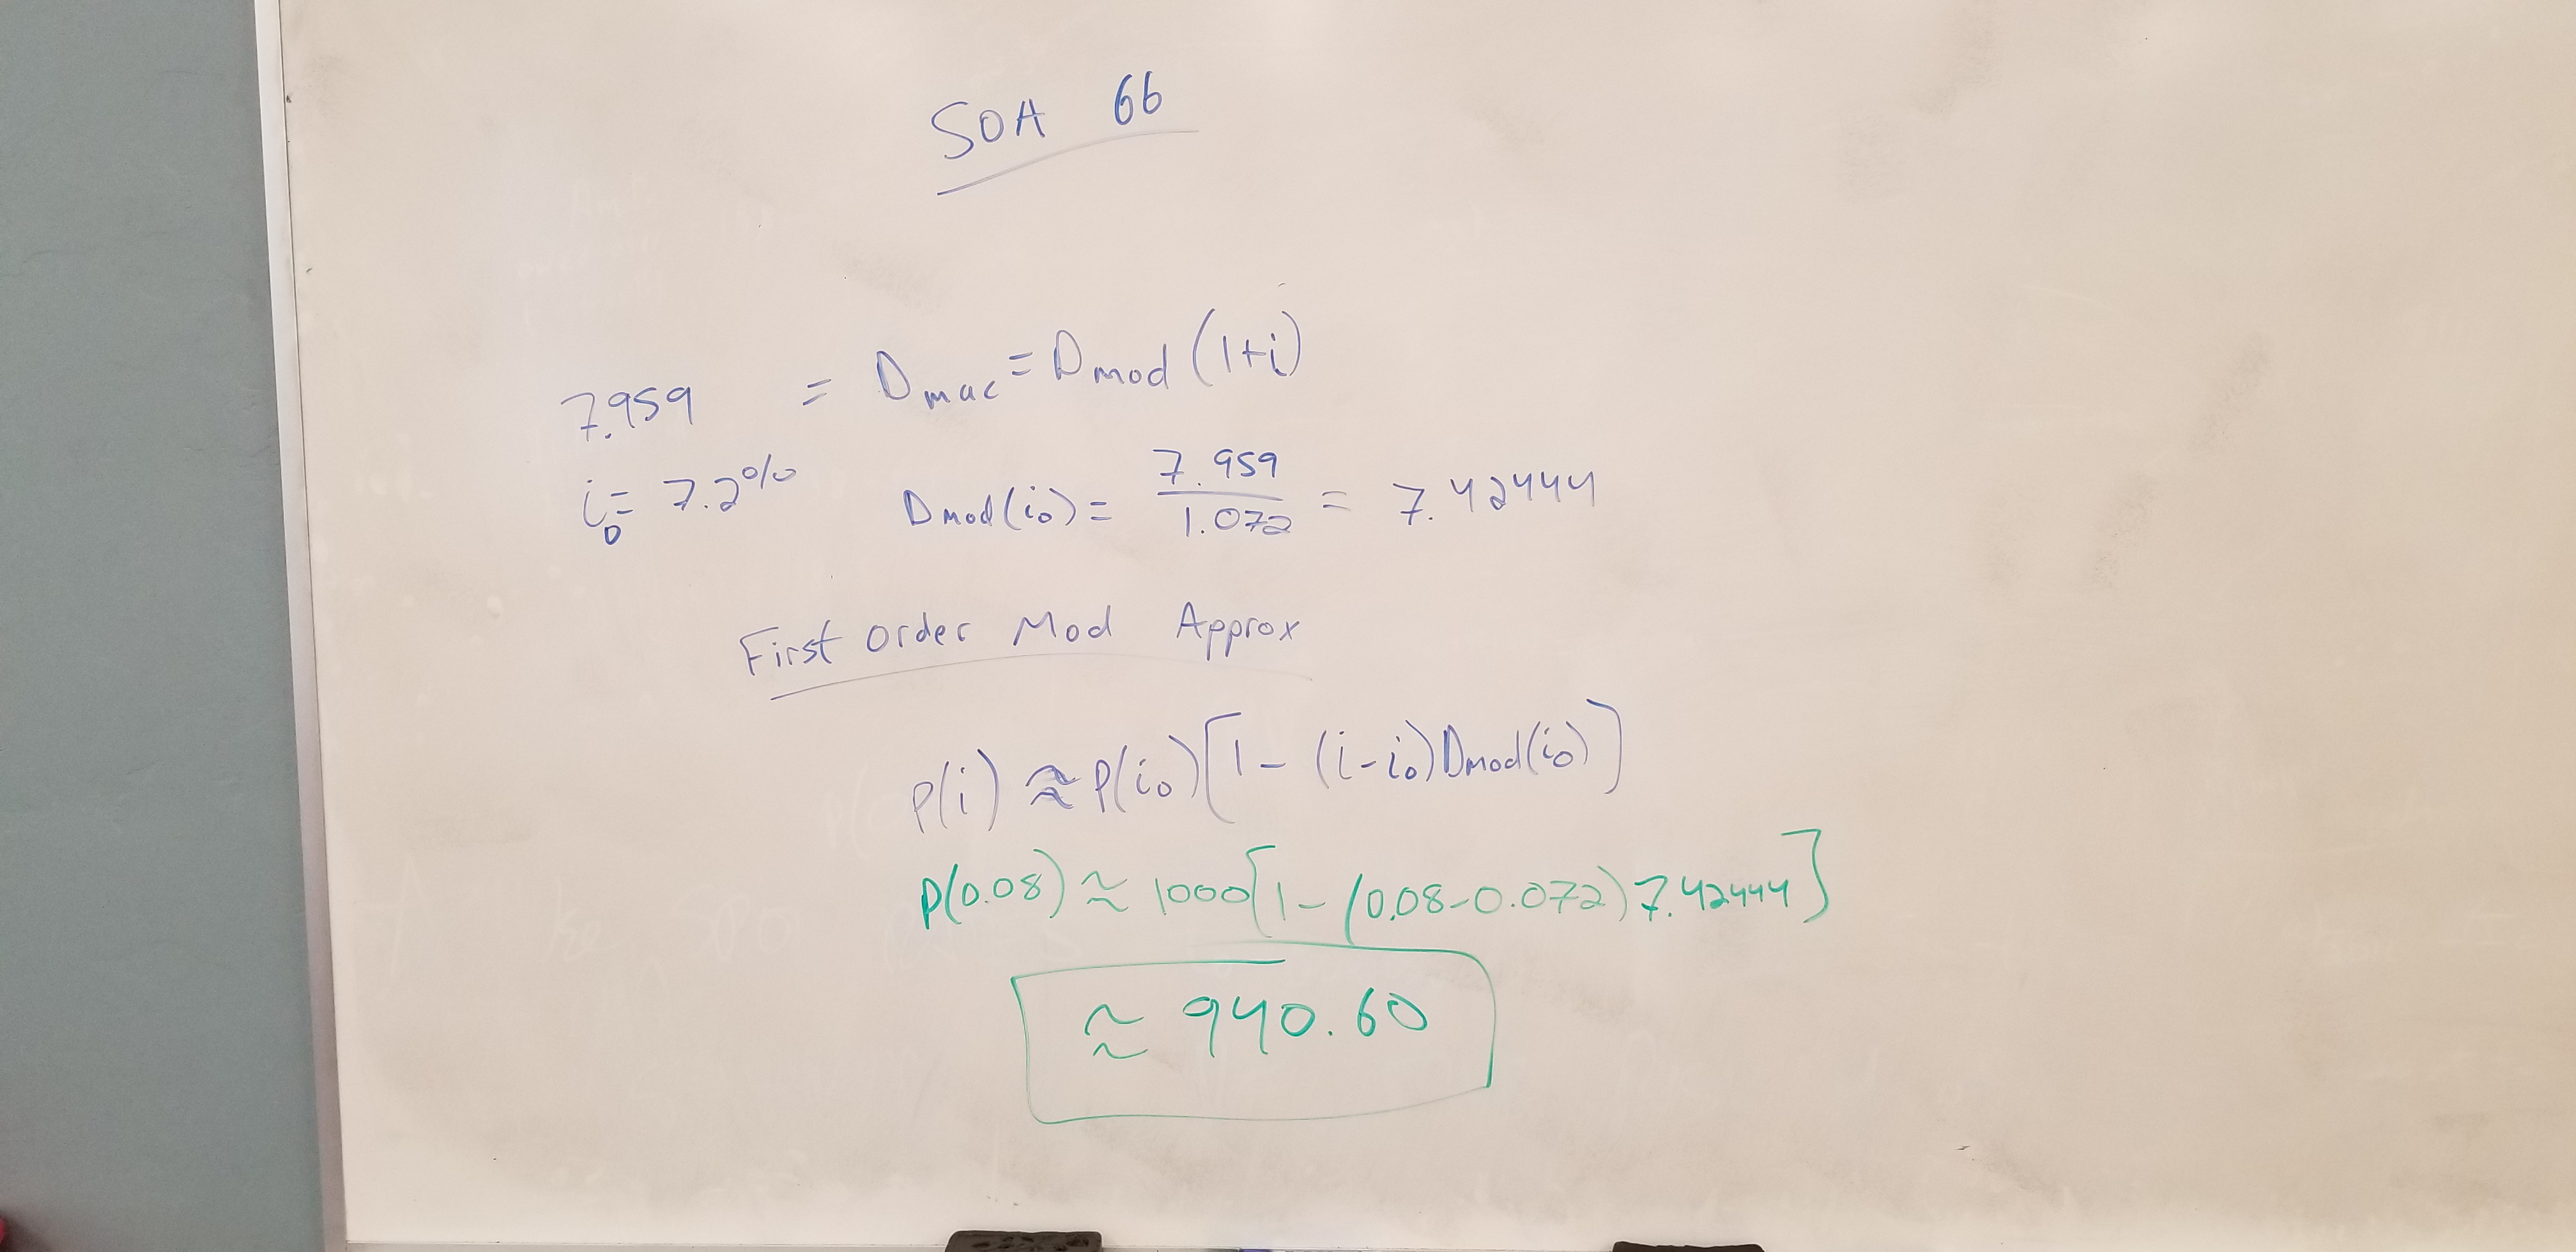 SOA 66
7.959 = Dmac = Dmod (1+i)
i₀ = 7.2% Dmod(i₀) = 7.959/1.072 = 7.42444
First Order Mod Approx
P(i) ≈ P(i₀)[1 - (i-i₀)Dmod(i₀)]
P(0.08) ≈ 1000[1 - (0.08-0.072)7.42444]
≈ 940.60